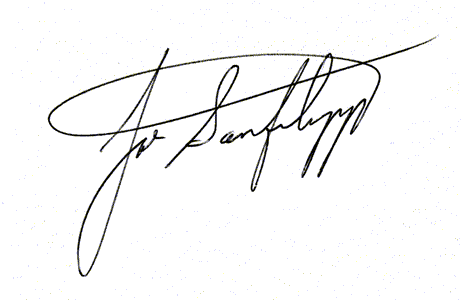 Joe Sanfilippo